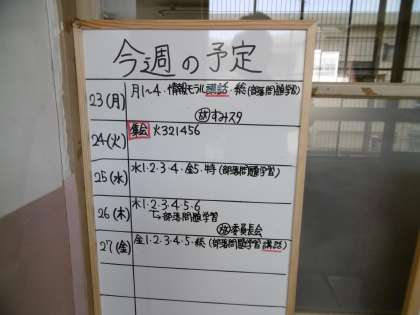 今週の予定
23(月) 月1~4・情報モラル講話・総(部落問題学習)
放すみスタ
24(火) 集会 火321456
25(水) 水1・2・3・4・金5・特(部落問題学習)
26(木) 木1・2・3・4・5・6
→部落問題学習
放委員長会
27(金) 金1・2・3・4・5・総(部落問題学習講話)